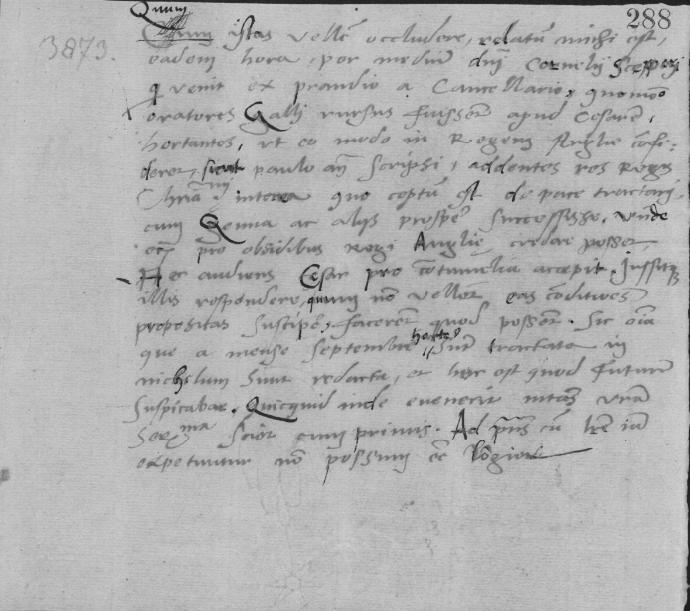 Quum 288
3873. Quum istas vellẽ occludere, relatũ michi est,
eadem hora, per mediũ dni Cornelii Scepperi
q venit ex prandio a Cancellario, quomõ
oratores Galli rursus fuissent apud Cesarẽ,
hortantes, ut eo modo in Regem Anglie cõfi-
deret, sicut paulo añ scripsi, addentes res Regis
Chriãmi interea quo ceptũ est de pace tractari
cum Genua ac aliis prospere successisse, unde
ecĩ pro obsidibus Regi Anglie credere posset,
Hec audiens Cesar pro cõtumelia accepit. Jussitq
illis respondere, quum nõ vellet eas cõditiones
propositas suscipe, facerent quod possent. Sic oĩa
que a mense Septembri hactẽ sunt tractata in
nichilum sunt redacta, et hec est quod futurũ
suspicabar. Quicquid inde evenerit mitã vrã
Serma sciet cum primis. Ad pñs cũ lrẽ iã
expetuntur nõ possum eẽ lõgior